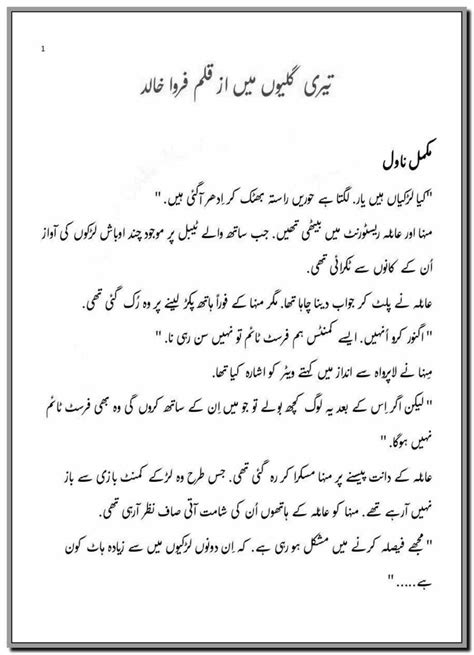 1
تیری گلیوں میں از قلم فروا خالد
مکمل ناول
"کیا لڑکیاں ہیں یار. لگتا ہے حوریں راستہ بھٹک کر اِدھر آگئی ہیں. "
منہا اور عاملہ ریسٹورنٹ میں بیٹھی تھیں. جب ساتھ والے ٹیبل پر موجود چند اوباش لڑکوں کی آواز
اُن کے کانوں سے ٹکرائی تھی.
عاملہ نے پلٹ کر جواب دینا چاہا تھا. مگر منہا کے فوراً ہاتھ پکڑ لینے پر وہ رُک گئی تھی.
" اگنور کرو اُنہیں. ایسے کمنٹس ہم فرسٹ ٹائم تو نہیں سن رہی نا. "
مِنہا نے لاپرواہ سے انداز میں کہتے ویٹر کو اشارہ کیا تھا.
" لیکن اگر اِس کے بعد یہ لوگ کچھ بولے تو جو میں اِن کے ساتھ کروں گی وہ بھی فرسٹ ٹائم
نہیں ہوگا. "
عاملہ کے دانت پیسنے پر منہا مسکرا کر رہ گئی تھی. جس طرح وہ لڑکے کمنٹ بازی سے باز
نہیں آرہے تھے. منہا کو عاملہ کے ہاتھوں اُن کی شامت آتی صاف نظر آرہی تھی.
" مجھے فیصلہ کرنے میں مشکل ہو رہی ہے. کہ اِن دونوں لڑکیوں میں سے زیادہ ہاٹ کون
ہے..... "